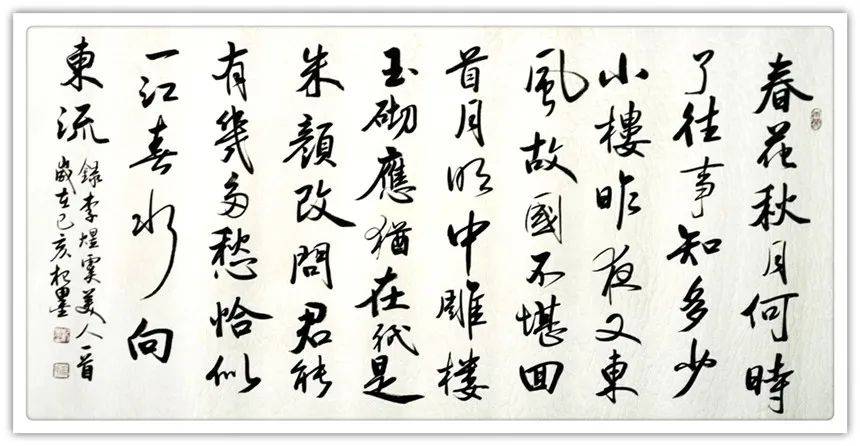 春花秋月何時
了往事知多少
小樓昨夜又東
風故國不堪回
首月明中雕楼
玉砌應猶在祇是
朱顏改問君能
有幾多愁恰似
一江春水向
東流
錄李煜虞美人一首
歲在己亥松墨